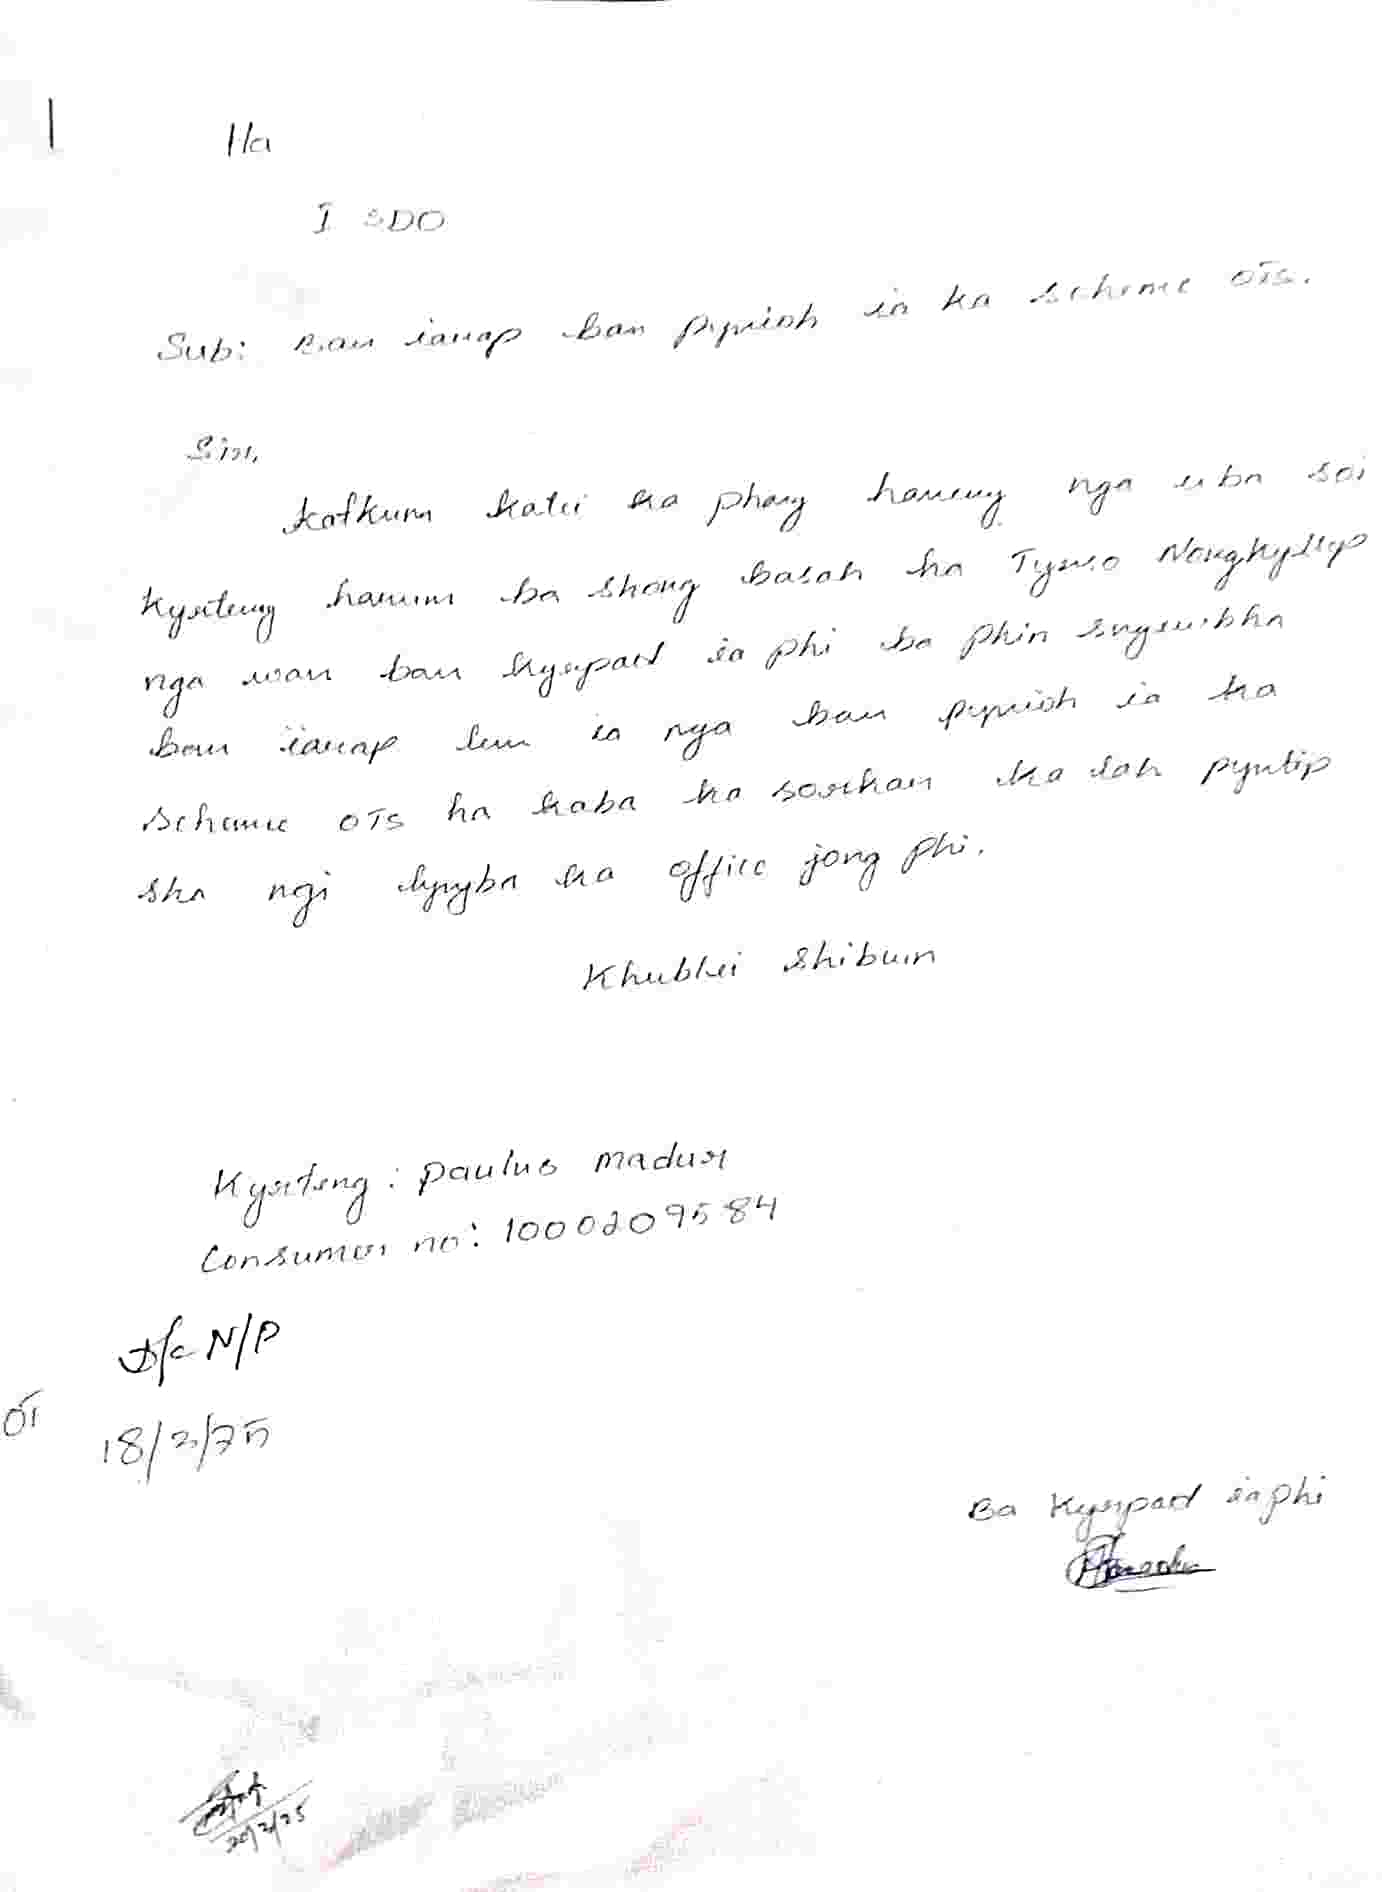 Ha
I SDO
Sub: Ban iarap ban pynioh ia ka scheme OTS.
Sir,
Katkum katei ka phang haneng nga uba soi
kyrteng harum ba shong basah ha Tyrso Nongkyllep
nga wan ban kyrpad ia phi ba phin sngewbha
ban iarap lem ia nga ban pynioh ia ka
scheme OTS ha kaba ka sorkar ka lah pyntip
sha ngi lyngba ka office jong phi.
Khublei shibun
Kyrteng: Paulus Madur
Consumer no: 1000209584
D/c N/P
18/2/25
Ba Kyrpad ia phi
20/2/25